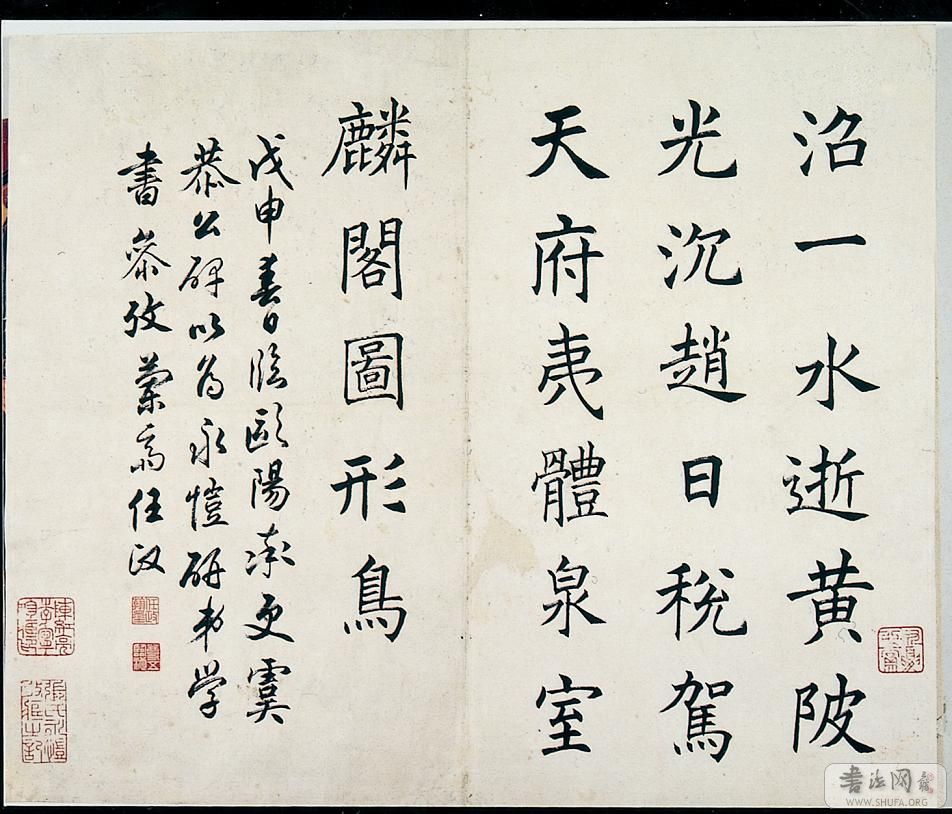 沿一水逝黄陂
光沉趙日税駕
天府夷體泉室
麟閣圖形鳥
戊申春日臨歐陽率更虞
恭公碑以為永愷研弟学
書叅攷蘭斋任政
書法网
WWW.SHUFA.ORG